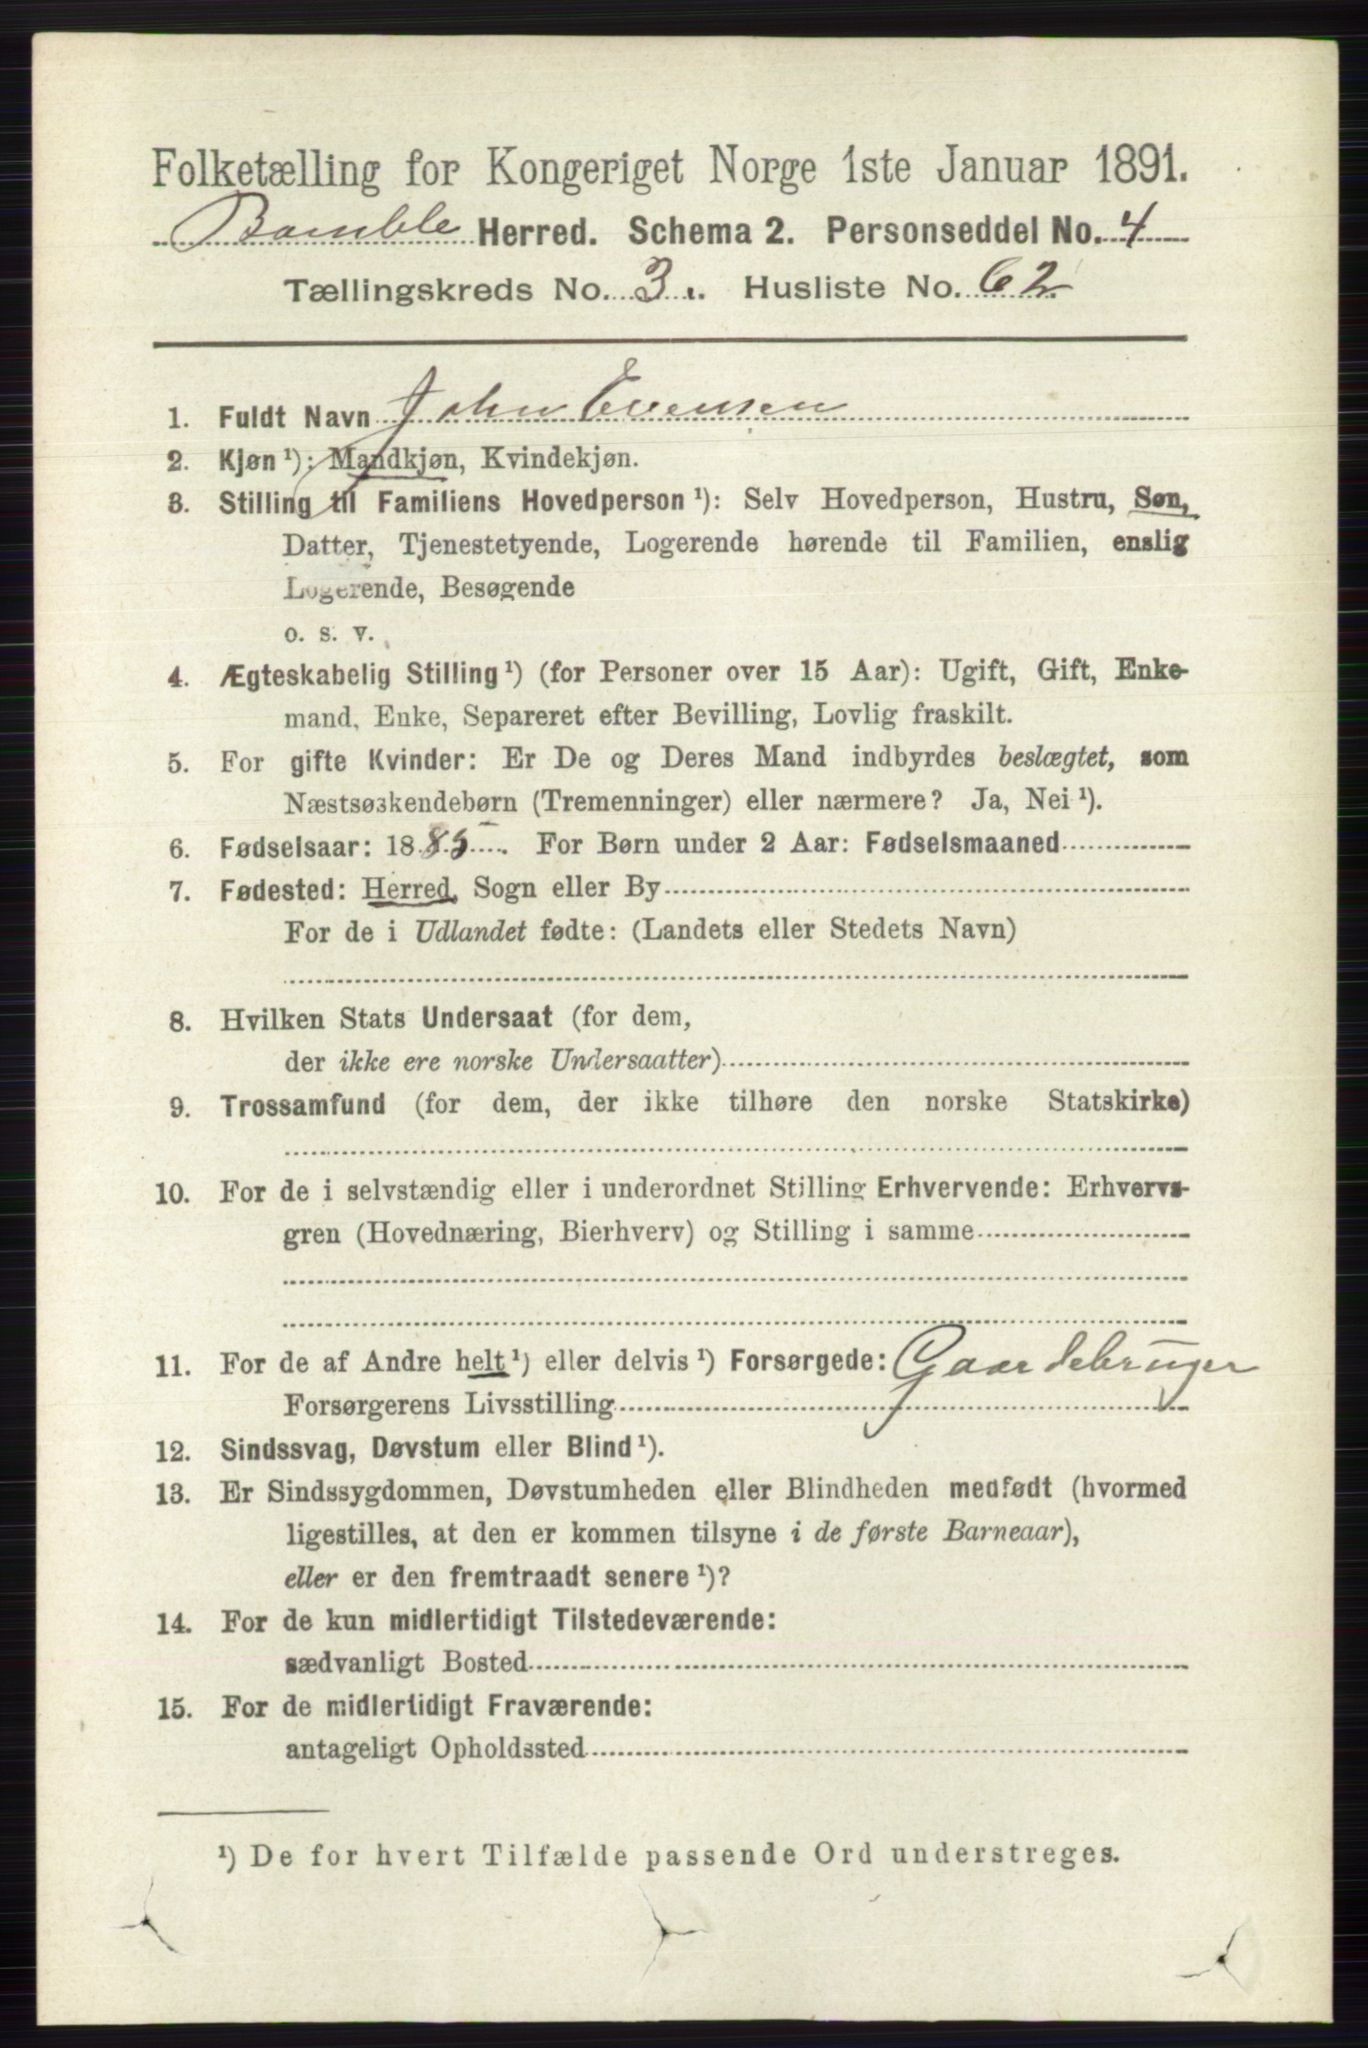 Folketælling for Kongeriget Norge 1ste Januar 1891.
Bamble Herred. Schema 2. Personseddel No. 4
Tællingskreds No. 3. Husliste No. 62.
1. Fuldt Navn John Evensen
2. Kjøn ¹): Mandkjøn, Kvindekjøn.
3. Stilling til Familiens Hovedperson ¹): Selv Hovedperson, Hustru, Søn,
Datter, Tjenestetyende, Logerende hørende til Familien, enslig
Logerende, Besøgende
o. s. v.
4. Ægteskabelig Stilling ¹) (for Personer over 15 Aar): Ugift, Gift, Enke-
mand, Enke, Separeret efter Bevilling, Lovlig fraskilt.
5. For gifte Kvinder: Er De og Deres Mand indbyrdes beslægtet, som
Næstsøskendebørn (Tremenninger) eller nærmere? Ja, Nei ¹).
6. Fødselsaar: 1885. For Børn under 2 Aar: Fødselsmaaned
7. Fødested: Herred, Sogn eller By
For de i Udlandet fødte: (Landets eller Stedets Navn)
8. Hvilken Stats Undersaat (for dem,
der ikke ere norske Undersaatter)
9. Trossamfund (for dem, der ikke tilhøre den norske Statskirke)
10. For de i selvstændig eller i underordnet Stilling Erhvervende: Erhvervs-
gren (Hovednæring, Bierhverv) og Stilling i samme
11. For de af Andre helt ¹) eller delvis ¹) Forsørgede: Gaardebruger
Forsørgerens Livsstilling
12. Sindssvag, Døvstum eller Blind ¹).
13. Er Sindssygdommen, Døvstumheden eller Blindheden medfødt (hvormed
ligestilles, at den er kommen tilsyne i de første Barneaar),
eller er den fremtraadt senere ¹)?
14. For de kun midlertidigt Tilstedeværende:
sædvanligt Bosted
15. For de midlertidigt Fraværende:
antageligt Opholdssted
¹) De for hvert Tilfælde passende Ord understreges.